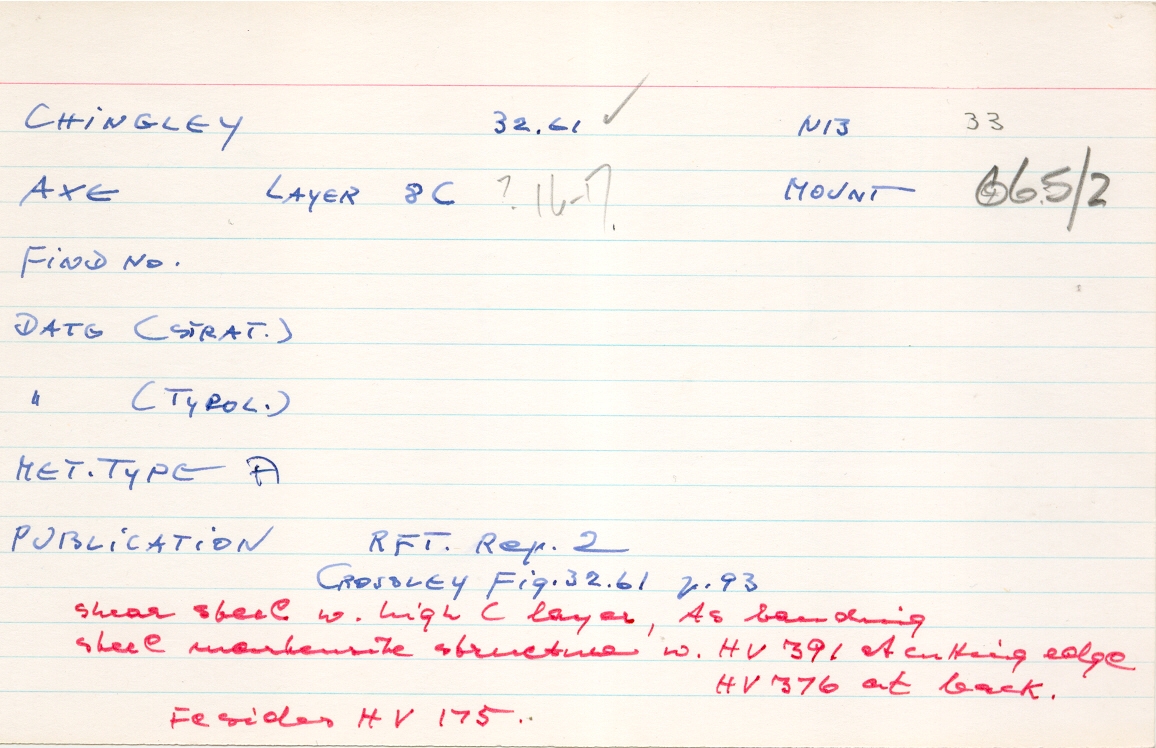 CHINGLEY 32.61 ✓ N13 33
AXE LAYER 8C ? 16-17. MOUNT 66.5/2
FIND No.
DATE (STRAT.)
" (TYPOL.)
MET. TYPE A
PUBLICATION RFT. Rep. 2
CROSSLEY Fig. 32.61 p. 93
shear steel w. high C layer, As banding
steel martensite structure w. HV 391 at cutting edge
HV 376 at back.
Fe sides HV 175..